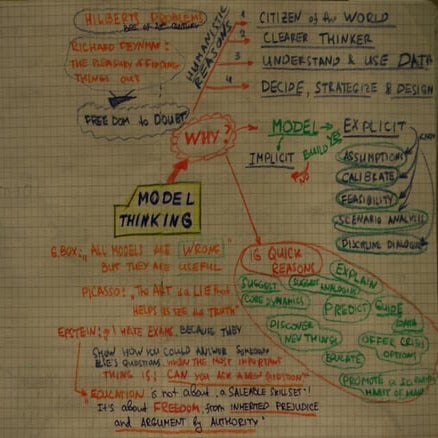 HILBERT'S PROBLEMS
BEG. of 20th CENTURY
RICHARD FEYNMAN:
THE PLEASURE of FINDING
THINGS OUT
FREEDOM to DOUBT
HUMANISTIC
REASONS
1 CITIZEN of the WORLD
2 CLEARER THINKER
3 UNDERSTAND & USE DATA
4 DECIDE, STRATEGIZE & DESIGN
WHY?
MODEL → EXPLICIT
IMPLICIT
BUILD
YES
NO
ASSUMPTIONS
CALIBRATE
FEASIBILITY
SCENARIO ANALYSIS
DISCIPLINE DIALOGUE
MODEL
THINKING
G.BOX: "ALL MODELS ARE WRONG
BUT THEY ARE USEFUL
PICASSO: "THE ART is a LIE that
HELPS US SEE the TRUTH"
EPSTEIN: I HATE EXAMS, BECAUSE THEY
SHOW HOW YOU COULD ANSWER SOMEBODY
ELSE'S QUESTIONS, WHEN THE MOST IMPORTANT
THING IS: CAN YOU ASK A NEW QUESTION"
"EDUCATION is not about a SALEABLE SKILLSET"!
IT'S about FREEDOM from INHERITED PREJUDICE
and ARGUMENT by AUTHORITY"
16 QUICK
REASONS
EXPLAIN
SUGGEST
SUGGEST ANALOGIES
CORE DYNAMICS
PREDICT
GUIDE
DATA
DISCOVER
NEW THINGS
OFFER CRISIS
OPTIONS
EDUCATE
PROMOTE a SCIENTIFIC
HABIT of MIND